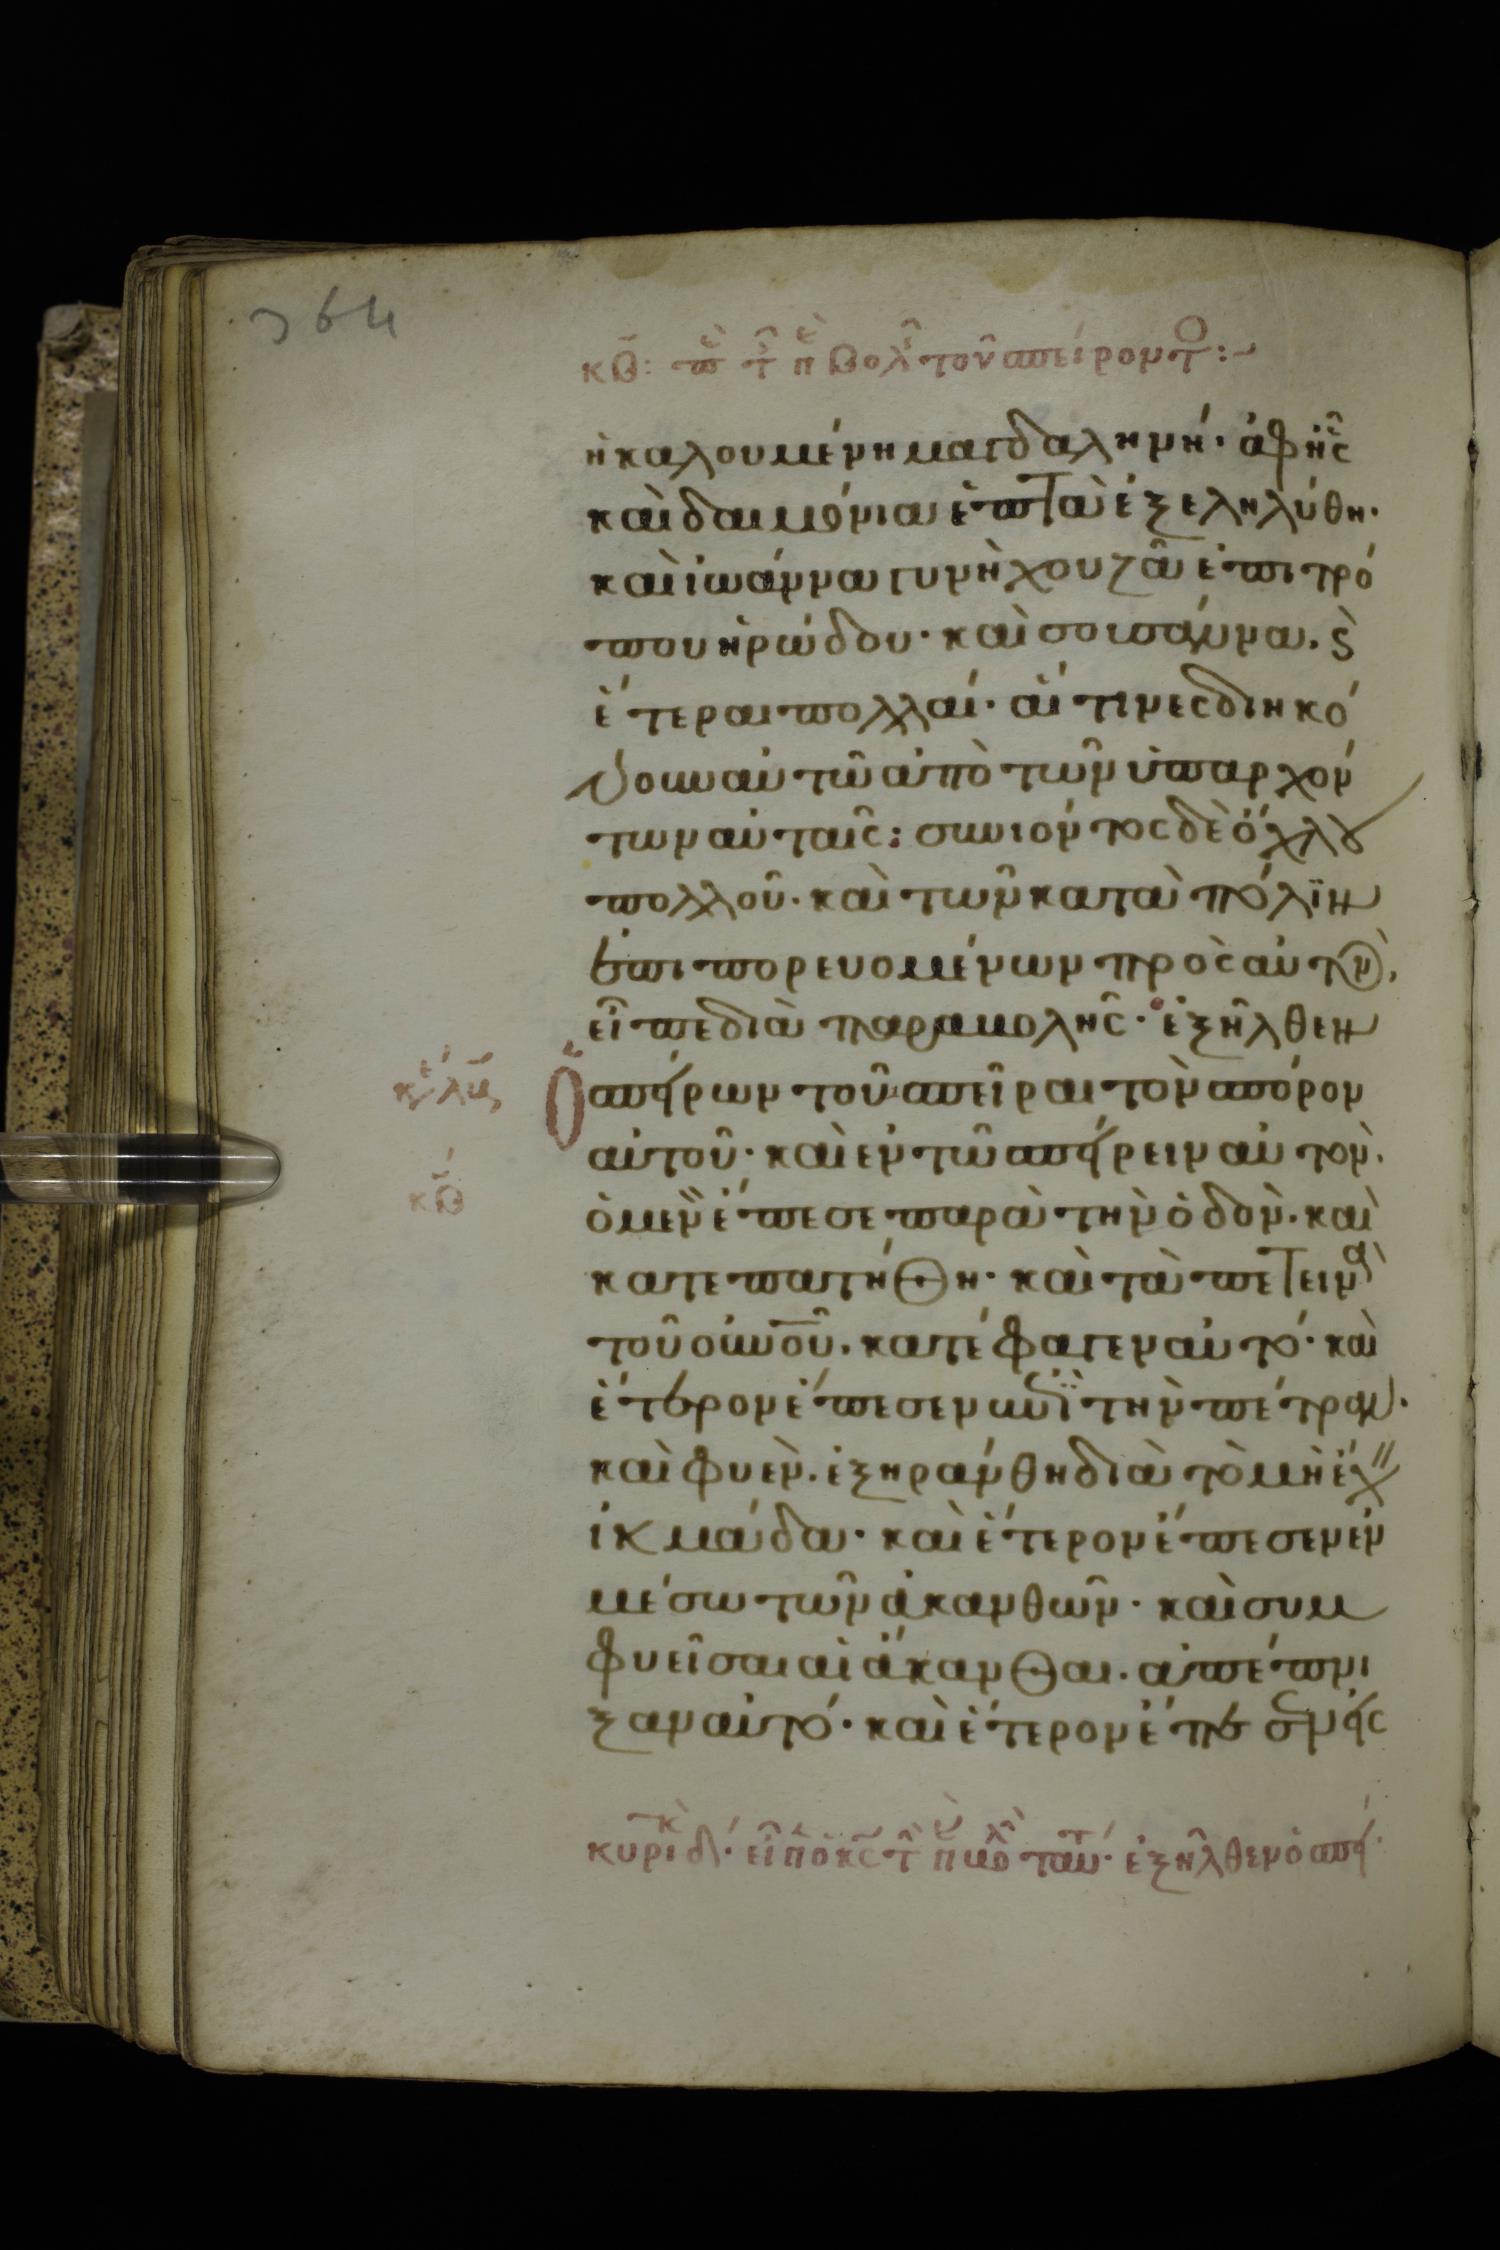 364
κβ: π τ π βολ τοῦ σπείροντ:
ἡ καλουμένη μαγδαληνή· ἀφῆς
καὶ δαιμόνια ἑπτὰ ἐξεληλύθη·
καὶ ἰωάννα γυνὴ χουζᾶ ἐπιτρό
που ἡρώδου· καὶ σοισάννα. ϛ̀
ἕτεραι πολλαί· αἵτινες διηκό
νουν αὐτῶ ἀπὸ τῶν ὑπαρχόν
των αὐταῖς: συνιόντος δὲ ὄχλου
πολλοῦ· καὶ τῶν κατὰ πόλϊν
ἐπιπορευομένων πρὸς αὐτὸν,
εἶπε διὰ παραβολῆς· ἐξῆλθεν
ὁ σπείρων τοῦ σπεῖραι τὸν σπόρον
αὐτοῦ· καὶ ἐν τῶ σπείρειν αὐτὸν.
ὁ μὲν ἔπεσε παρὰ τὴν ὁδὸν. καὶ
κατεπατήθη· καὶ τὰ πετεινὰ
τοῦ οὐνοῦ. κατέφαγεν αὐτό· καὶ
ἕτερον ἔπεσεν ἐπὶ τὴν πέτραν.
καὶ φυὲν. ἐξηράνθη διὰ τὸ μὴ ἔχ
ἰκμάδα· καὶ ἕτερον ἔπεσεν ἐν
μέσω τῶν ἀκανθῶν· καὶ συμ
φυεῖσαι αἱ ἄκανθαι. ἀπέπνι
ξαν αὐτό· καὶ ἕτερον ἔπεσεν εἰς
κυριακ δ· εἶπ ὁ κς τ π ταύτ· ἐξῆλθεν ὁ σπεί
κβ